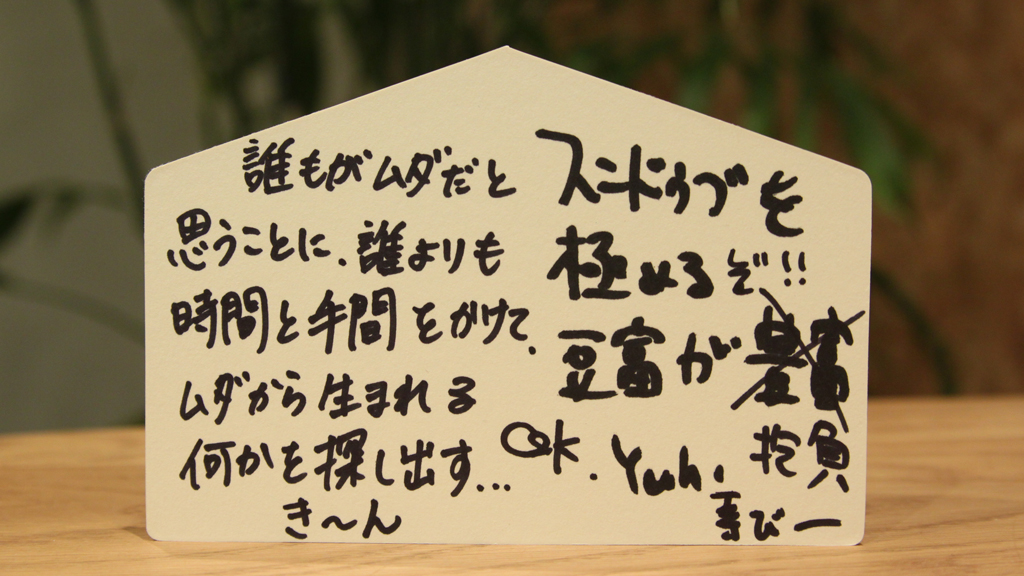 誰もがムダだと
思うことに、誰よりも
時間と手間をかけて、
ムダから生まれる
何かを探し出す...
き〜ん
スンドゥブを
極めるぞ!!
豆富が豊富
抱負
Ok. Yuh.
寿びー